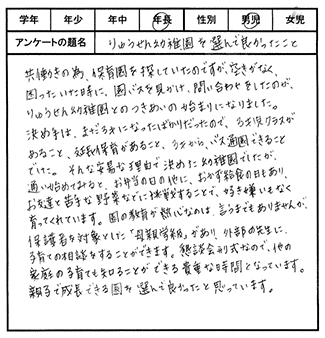 学年 年少 年中 年長 性別 男児 女児
アンケートの題名 りゅうせん幼稚園を選んで良かったこと
共働きの為、保育園を探していたのですが、空きがなく、
困っていた時に、園バスを見かけ、問い合わせをしたのが、
りゅうせん幼稚園とのつきあいの始まりになりました。
決め手は、まだ3才になったばかりだったので、うさぎクラスが
あること、延長保育があること、うちから、バス通園できること
でした。そんな安易な理由で決めた幼稚園でしたが、
通い始めてみると、お弁当の日の他に、おかず給食の日もあり、
お友達と苦手な野菜などに挑戦することで、好き嫌いもなく
育ってくれています。園の教育が熱心なのは、言うまでもありませんが、
保護者を対象とした「母親学級」があり、外部の先生に、
子育ての相談をすることができます。懇談会形式なので、他の
家庭の子育ても知ることができる貴重な時間となっています。
親子で成長できる園を選んで良かったと思っています。